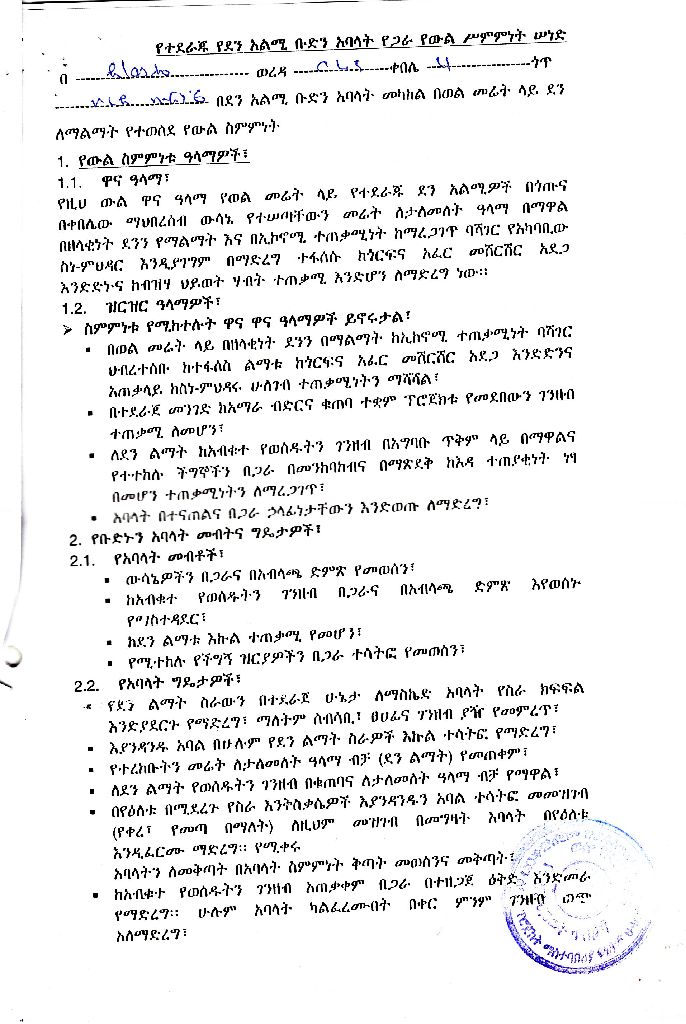 የተደራጁ የደን አልሚ ቡድን አባላት የጋራ የውል ሥምምነት ሠነድ
በ ወረዳ ቀበሌ ጎጥ
በደን አልሚ ቡድን አባላት መካከል በወል መሬት ላይ ደን
ለማልማት የተወሰደ የውል ስምምነት
1. የውል ስምምነቱ ዓላማዎች፣
1.1. ዋና ዓላማ፣
የዚህ ውል ዋና ዓላማ የወል መሬት ላይ የተደራጁ ደን አልሚዎች በጎጡና
በቀበሌው ማህበረሰብ ውሳኔ የተሠጣቸውን መሬት ለታለመለት ዓላማ በማዋል
በዘላቂነት ደንን የማልማት እና በኢኮኖሚ ተጠቃሚነት ከማረጋገጥ ባሻገር የአካባቢው
ስነ-ምህዳር እንዲያገግም በማድረግ ተፋሰሱ ከጎርፍና አፈር መሸርሸር አደጋ
እንድድኑና ከብዝሃ ህይወት ሃብት ተጠቃሚ እንድሆን ለማድረግ ነው።
1.2. ዝርዝር ዓላማዎች፣
➢ ስምምነቱ የሚከተሉት ዋና ዋና ዓላማዎች ይኖሩታል፣
▪ በወል መሬት ላይ በዘላቂነት ደንን በማልማት ከኢኮኖሚ ተጠቃሚነት ባሻገር
ህብረተሰቡ ከተፋሰስ ልማቱ ከጎርፍና አፈር መሸርሸር አደጋ እንድድንና
አጠቃላይ ከስነ-ምህዳሩ ሁለገብ ተጠቃሚነትን ማሻሻል፣
▪ በተደራጀ መንገድ ከአማራ ብድርና ቁጠባ ተቋም ፕሮጀክቱ የመደበውን ገንዘብ
ተጠቃሚ ለመሆን፣
▪ ለደን ልማት ከአብቁተ የወሰዱትን ገንዘብ በአግባቡ ጥቅም ላይ በማዋልና
የተተከሉ ችግኞችን በጋራ በመንከባከብና በማጽደቅ ከእዳ ተጠያቂነት ነፃ
በመሆን ተጠቃሚነትን ለማረጋገጥ፣
▪ አባላት በተናጠልና በጋራ ኃላፊነታቸውን እንድወጡ ለማድረግ፣
2. የቡድኑን አባላት መብትና ግዴታዎች፣
2.1. የአባላት መብቶች፣
▪ ውሳኔዎችን በጋራና በአብላጫ ድምጽ የመወሰን፣
▪ ከአብቁተ የወሰዱትን ገንዘብ በጋራና በአብላጫ ድምጽ እየወሰኑ
የማስተዳደር፣
▪ ከደን ልማቱ እኩል ተጠቃሚ የመሆን፣
▪ የሚተከሉ የችግኝ ዝርያዎችን በጋራ ተሳትፎ የመወሰን፣
2.2. የአባላት ግዴታዎች፣
▪ የደን ልማት ስራውን በተደራጀ ሁኔታ ለማስኬድ አባላት የስራ ክፍፍል
እንድያደርጉ የማድረግ፣ ማለትም ሰብሳቢ፣ ፀሀፊና ገንዘብ ያዥ የመምረጥ፣
▪ እያንዳንዱ አባል በሁሉም የደን ልማት ስራዎች እኩል ተሳትፎ የማድረግ፣
▪ የተረከቡትን መሬት ለታለመለት ዓላማ ብቻ (ደን ልማት) የመጠቀም፣
▪ ለደን ልማት የወሰዱትን ገንዘብ በቁጠባና ለታለመለት ዓላማ ብቻ የማዋል፣
▪ በየዕለቱ በሚደረጉ የስራ እንትስቃሴዎች እያንዳንዱን አባል ተሳትፎ መመዝገብ
(የቀረ፣ የመጣ በማለት) ለዚህም መዝገብ በመግዛት አባላት በየዕለቱ
እንዲፈርሙ ማድረግ። የሚቀሩ
አባላትን ለመቅጣት በአባላት ስምምነት ቅጣት መወሰንና መቅጣት፣
▪ ከአብቁተ የወሰዱትን ገንዘብ አጠቃቀም በጋራ በተዘጋጀ ዕቅድ እንድመራ
የማድረግ። ሁሉም አባላት ካልፈረሙበት በቀር ምንም ገንዘብ ወጭ
አለማድረግ፣